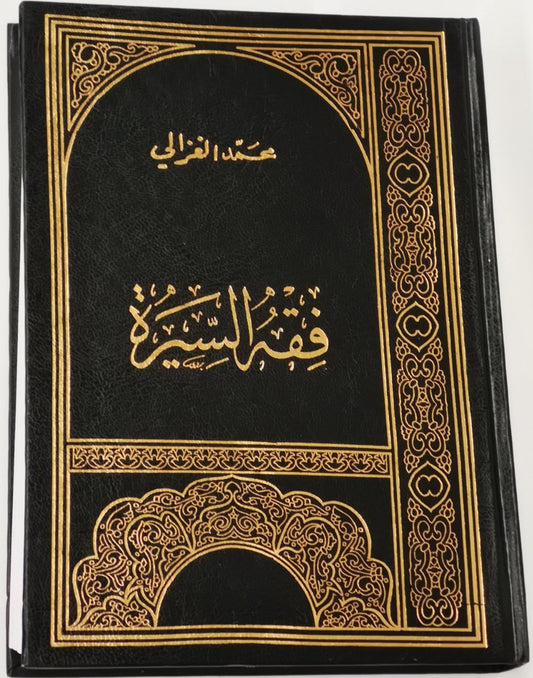 محمد الغزالي
فِقهُ السِّيرَة